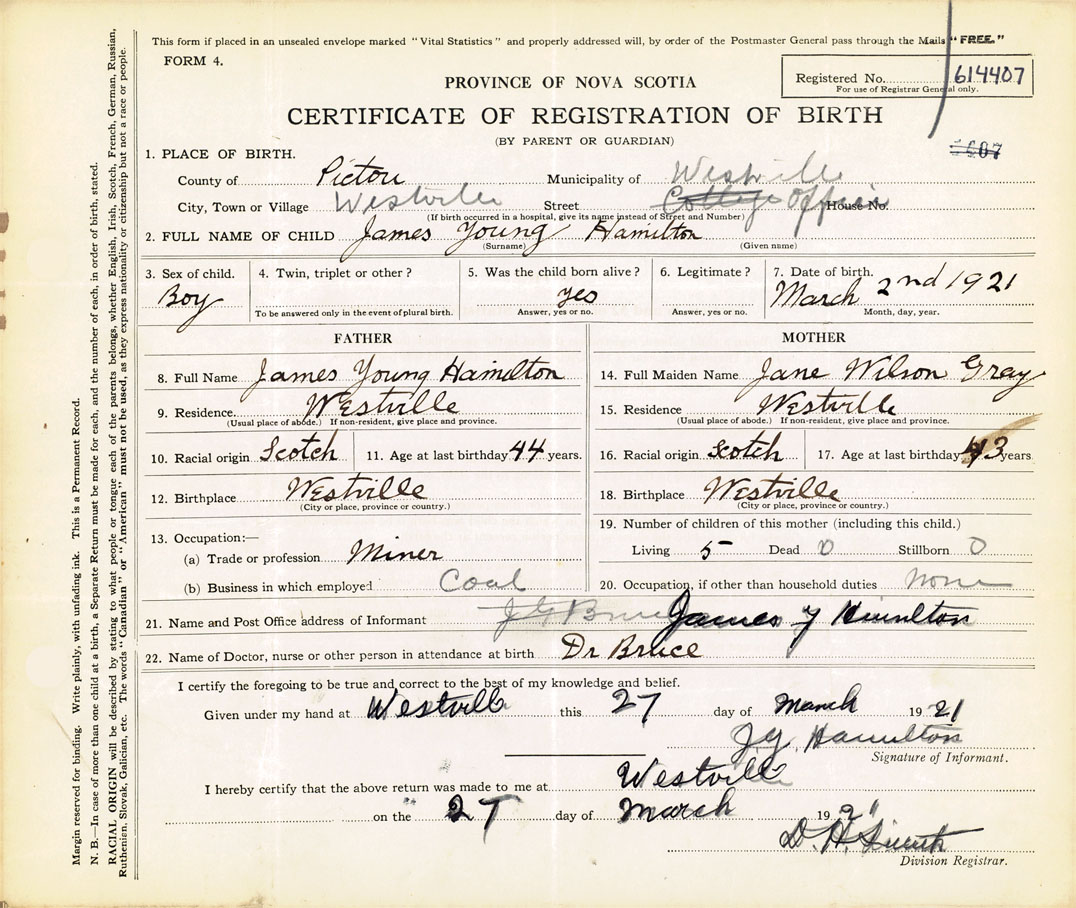 This form if placed in an unsealed envelope marked "Vital Statistics" and properly addressed will, by order of the Postmaster General pass through the Mails "FREE."
FORM 4.
Registered No. 614407
For use of Registrar General only.
PROVINCE OF NOVA SCOTIA
CERTIFICATE OF REGISTRATION OF BIRTH
(BY PARENT OR GUARDIAN)
1. PLACE OF BIRTH.
County of Pictou Municipality of Westville
City, Town or Village Westville Street Cottage Office House No.
(If birth occurred in a hospital, give its name instead of Street and Number)
2. FULL NAME OF CHILD James Young Hamilton
(Surname) (Given name)
3. Sex of child. 4. Twin, triplet or other? 5. Was the child born alive? 6. Legitimate? 7. Date of birth.
Boy yes March 2nd 1921
To be answered only in the event of plural birth. Answer, yes or no. Answer, yes or no. Month, day, year.
FATHER
8. Full Name James Young Hamilton
9. Residence. Westville
(Usual place of abode.) If non-resident, give place and province.
10. Racial origin Scotch 11. Age at last birthday 44 years.
12. Birthplace Westville
(City or place, province or country.)
13. Occupation:—
(a) Trade or profession Miner
(b) Business in which employed Coal
MOTHER
14. Full Maiden Name Jane Wilson Gray
15. Residence Westville
(Usual place of abode.) If non-resident, give place and province.
16. Racial origin Scotch 17. Age at last birthday 43 years
18. Birthplace Westville
(City or place, province or country.)
19. Number of children of this mother (including this child.)
Living 5 Dead 0 Stillborn 0
20. Occupation, if other than household duties None
21. Name and Post Office address of Informant James Y Hamilton
22. Name of Doctor, nurse or other person in attendance at birth Dr Bruce
I certify the foregoing to be true and correct to the best of my knowledge and belief.
Given under my hand at Westville this 27 day of March 1921
J Y Hamilton
Signature of Informant.
I hereby certify that the above return was made to me at Westville
on the 27 day of March 1921
D. H.
Division Registrar.
Margin reserved for binding. Write plainly, with unfading ink. This is a Permanent Record.
N. B.—In case of more than one child at a birth, a Separate Return must be made for each, and the number of each, in order of birth, stated.
RACIAL ORIGIN will be described by stating to what people or tongue each of the parents belongs, whether English, Irish, Scotch, French, German, Russian,
Ruthenien, Slovak, Galician, etc. The words "Canadian" or "American" must not be used, as they express nationality or citizenship but not a race or people.